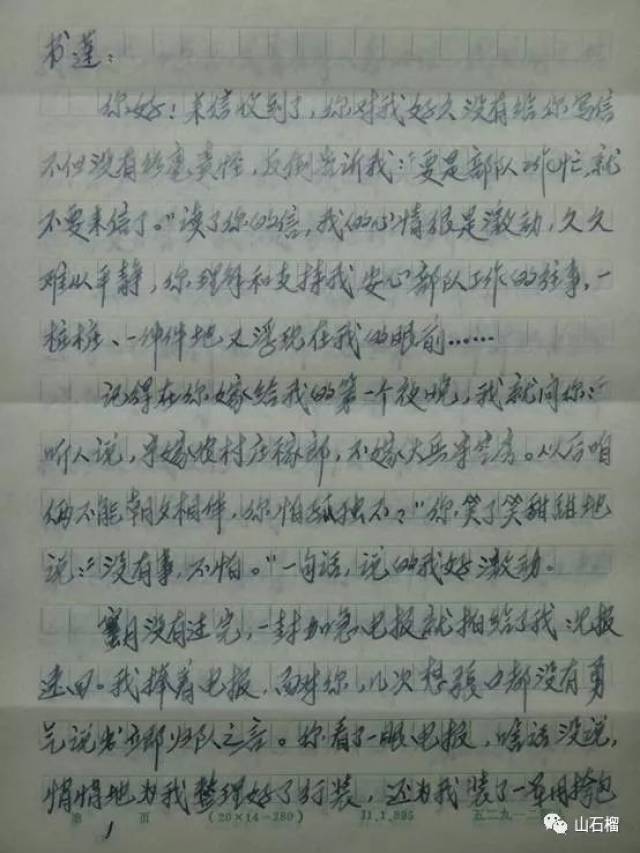 书莲：
你好！来信收到了，你对我好久没有给你写信
不但没有丝毫责怪，反倒告诉我：“要是部队工作忙，就
不要来信了。”读了你的信，我的心情很是激动，久久
难以平静，你理解和支持我安心部队工作的往事，一
桩桩、一件件地又浮现在我的眼前……
记得在你嫁给我的第一个夜晚，我就问你：“
听人说，宁嫁农村庄稼郎，不嫁大兵守空房。从后咱
俩不能朝夕相伴，你怕孤独不？”你，笑了笑甜甜地
说：“没有事，不怕。”一句话，说的我好激动。
蜜月没有过完，一封加急电报就拍给了我：见报
速回。我捧着电报，面对你，几次想张口都没有勇
气说出立即归队之言。你看了一眼电报，啥话没说，
悄悄地为我整理好了行装，还为我装了一军用挎包
第 1 页 (20×14=280) 11.1.895 五二九一二
山石榴